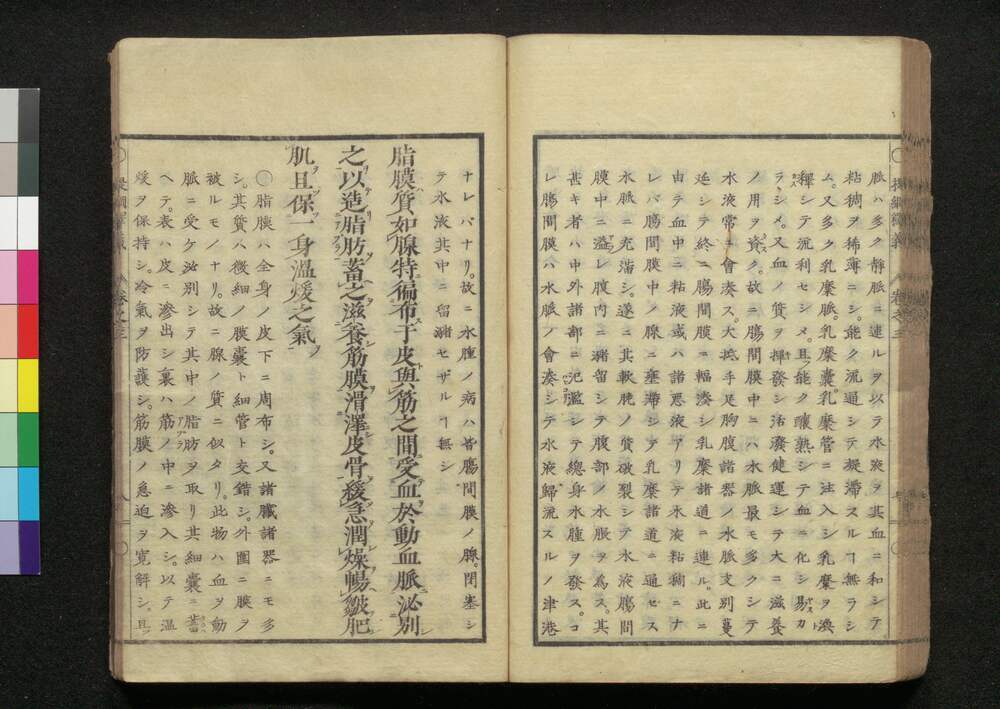 脈ハ多ク静脈ニ連ルヲ以テ水液ヲ其血ニ和シテ
粘稠ヲ稀薄ニシ。能ク流通シテ凝滞スルヿ無ラシ
ム。又多ク乳糜脈。乳糜囊乳糜管ニ注入シ乳糜ヲ渙
釋シテ流利セシメ。且ツ能ク釀熟シテ血ニ化シ易カ
ラシメ。又血ノ質ヲ揮發シ活潑健運シテ大ニ滋養
ノ用ヲ資ク。故ニ膓間膜中ニハ水脈最モ多クシテ
水液常ニ會湊ス。大抵手足胸腹諸器ノ水脈支別蔓
延シテ終ニ膓間膜ニ輻湊シ乳糜諸道ニ連ル。此ニ
由テ血中ニ粘液或ハ諸悪液アリテ水液粘稠ニナ
レバ膓間膜中ノ腺ニ壅滞シテ乳糜諸道ニ通セス
水脈ニ充滿シ。遂ニ其軟脆ノ質破裂シテ水液膓間
膜中ニ溢レ腹内ニ瀦留シテ腹部ノ水脹ヲ為ス。其
甚キ者ハ中外諸部ニ氾濫シテ總身水腫ヲ發ス。コ
レ膓間膜ハ水脈ノ會湊シテ水液歸流スルノ津港
ナレバナリ。故ニ水腫ノ病ハ皆膓間膜ノ腺。閉塞シ
テ水液其中ニ留瀦セザルヿ無シ
脂膜質如腺特徧布于皮與筋之間受血於動血脈泌別
之以造脂肪蓄之滋養筋膜滑澤皮骨緩急潤燥暢皺肥
肌且保一身溫煖之氣
〇脂膜ハ全身ノ皮下ニ周布シ。又諸臓諸器ニモ多
シ。其質ハ微細ノ膜囊ト細管ト交錯シ。外圍ニ膜ヲ
被ルモノナリ。故ニ腺ノ質ニ似タリ。此物ハ血ヲ動
脈ニ受ケ泌別シテ其中ノ脂肪ヲ取リ其細囊ニ蓄
ヘテ。表ハ皮ニ滲出シ裏ハ筋ノ中ニ滲入シ。以テ溫
煖ヲ保持シ。冷氣ヲ防護シ。筋膜ノ急迫ヲ寛解シ。且